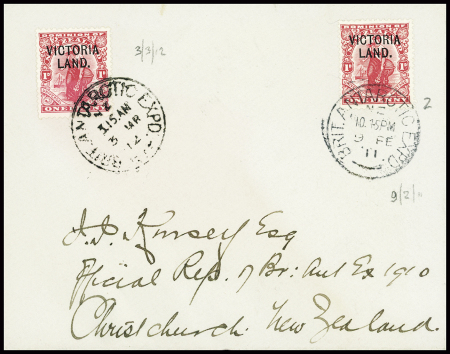 DOMINION OF
VICTORIA
LAND.
1D 1D
ONE PENNY
3/3/12
BRIT. ANTARCTIC EXPD.
3.15 AM
3 MR
12
DOMINION OF
VICTORIA
LAND.
1D 1D
2
BRIT. ANTARCTIC EXPD.
10.35PM
9 FE
11
9/2/11
J.J. Kinsey Esq
Official Rep. of Br: Ant Ex 1910
Christchurch. New Zealand.